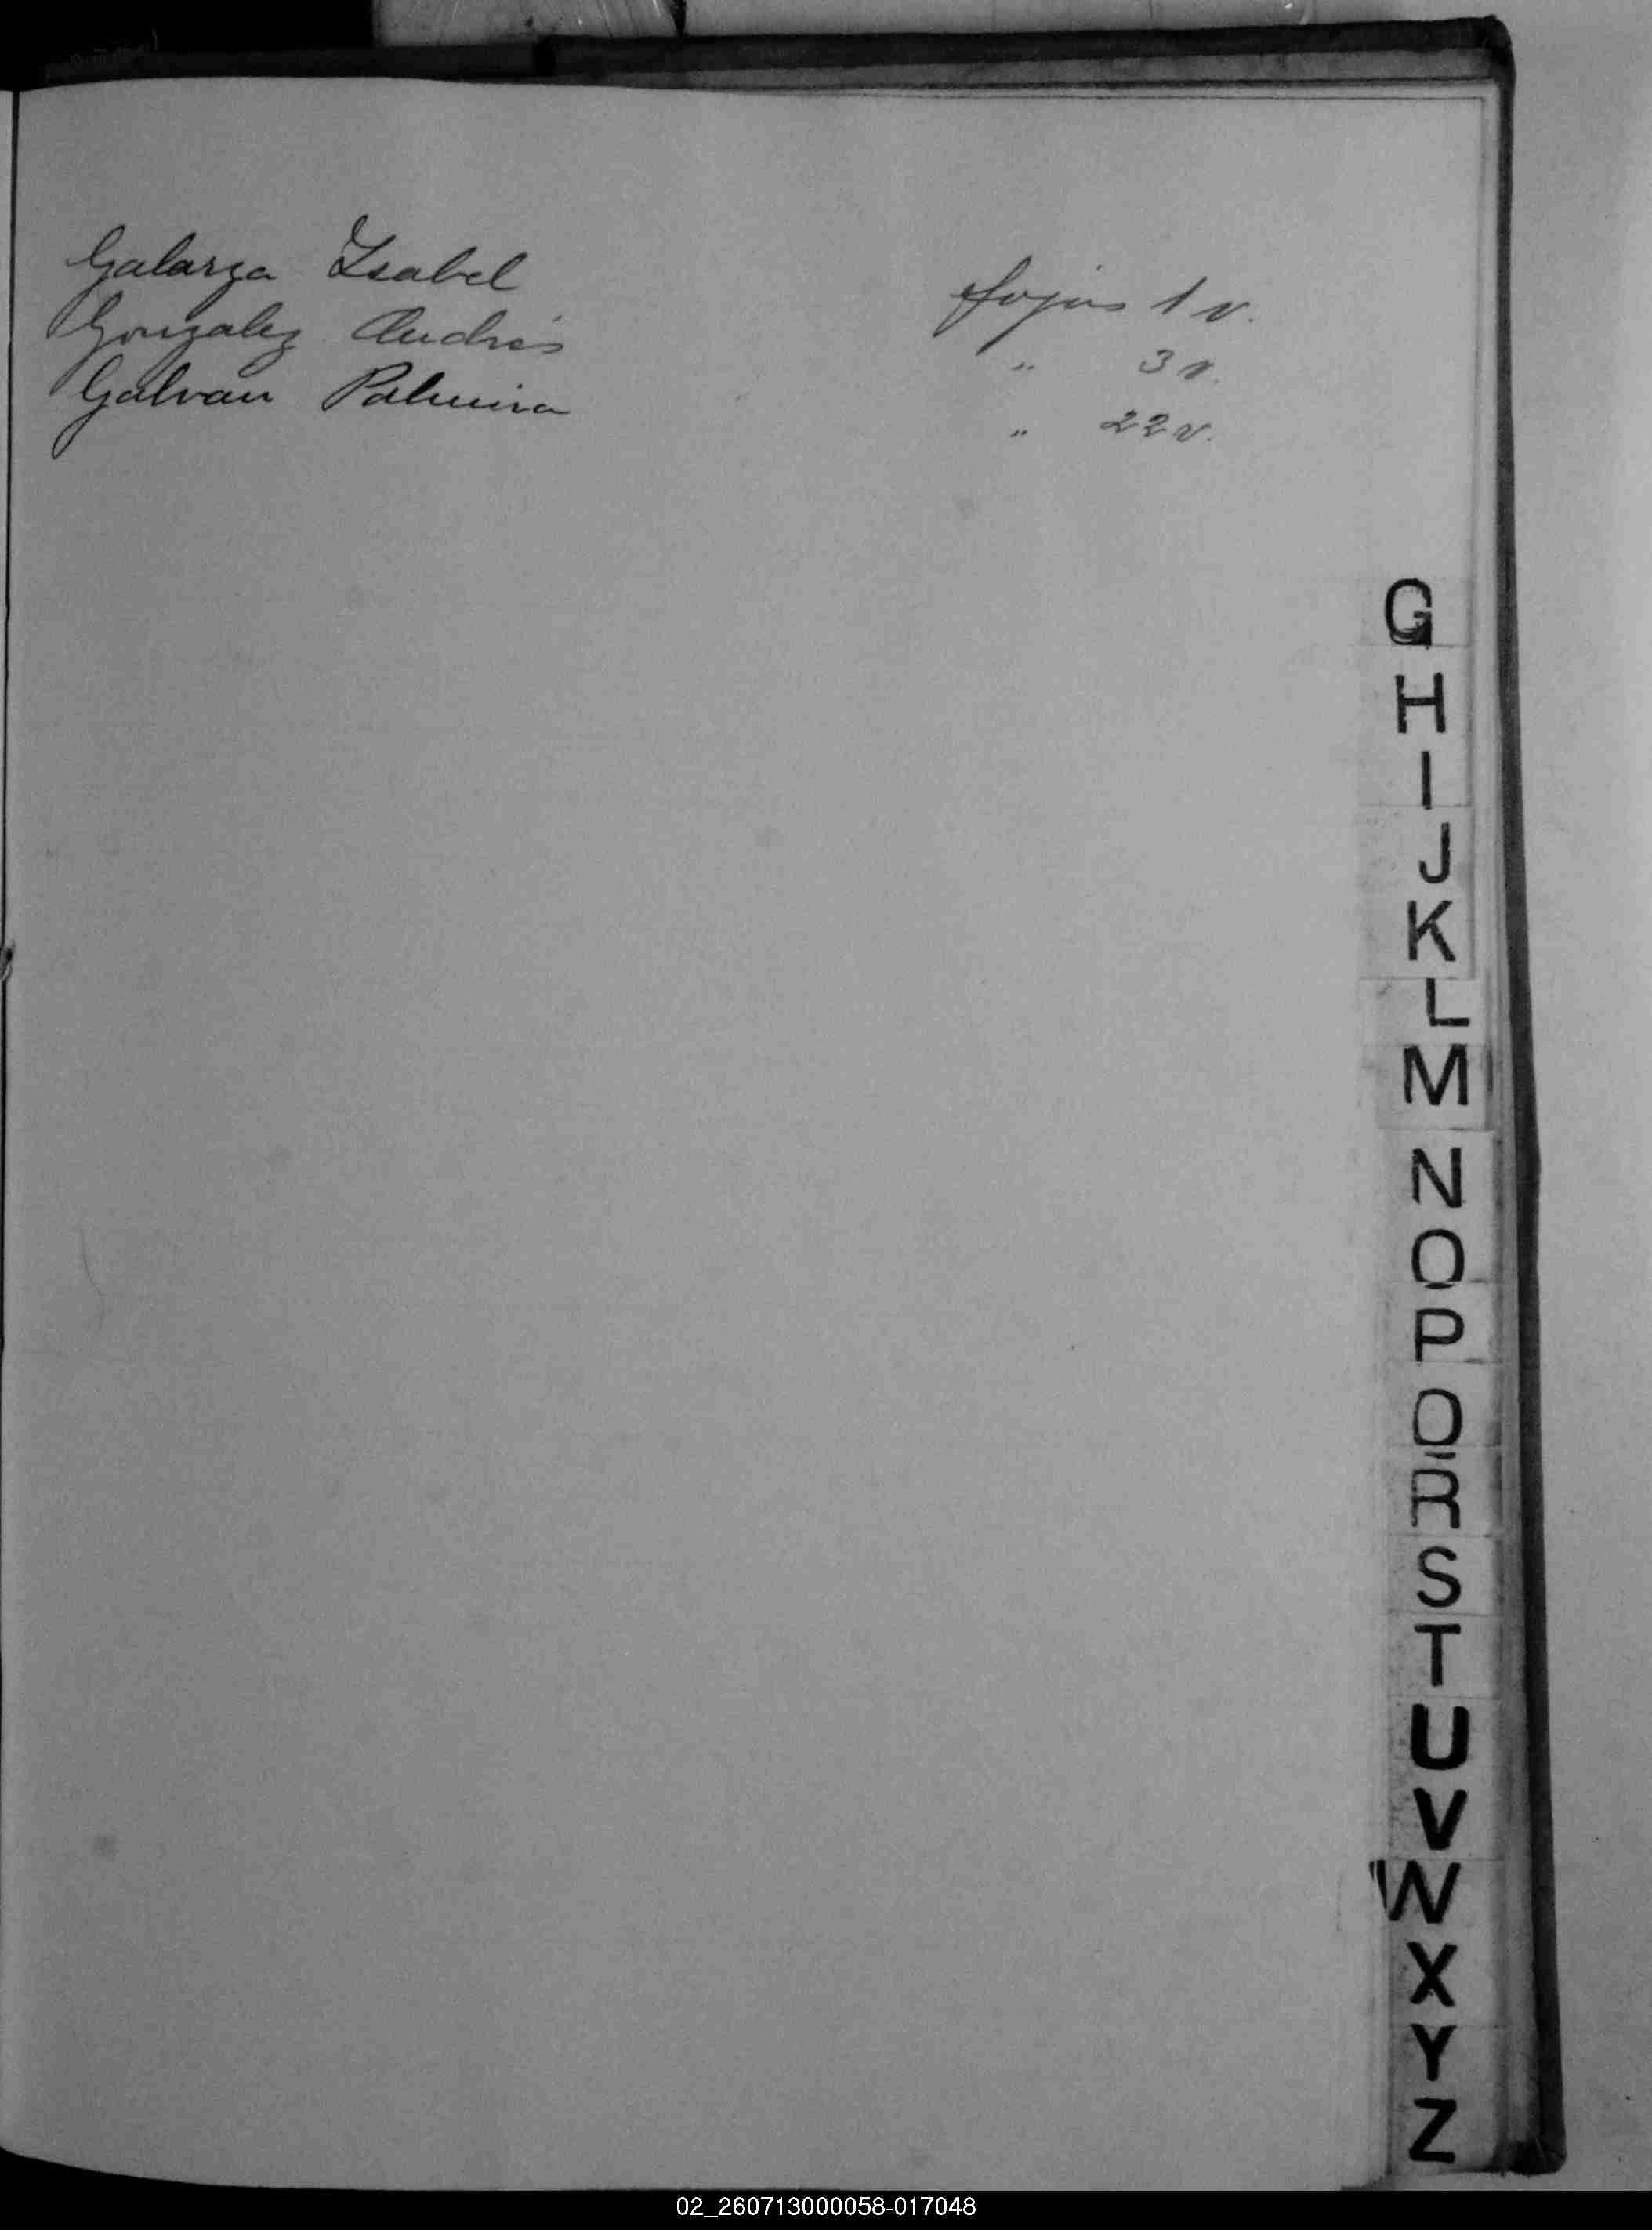 Galarza Isabel fojas 1 v.
Gonzalez Andrés " 3 v.
Galvan Palmira " 22 v.
G
H
I
J
K
L
M
N
O
P
Q
R
S
T
U
V
W
X
Y
Z
02_260713000058-017048